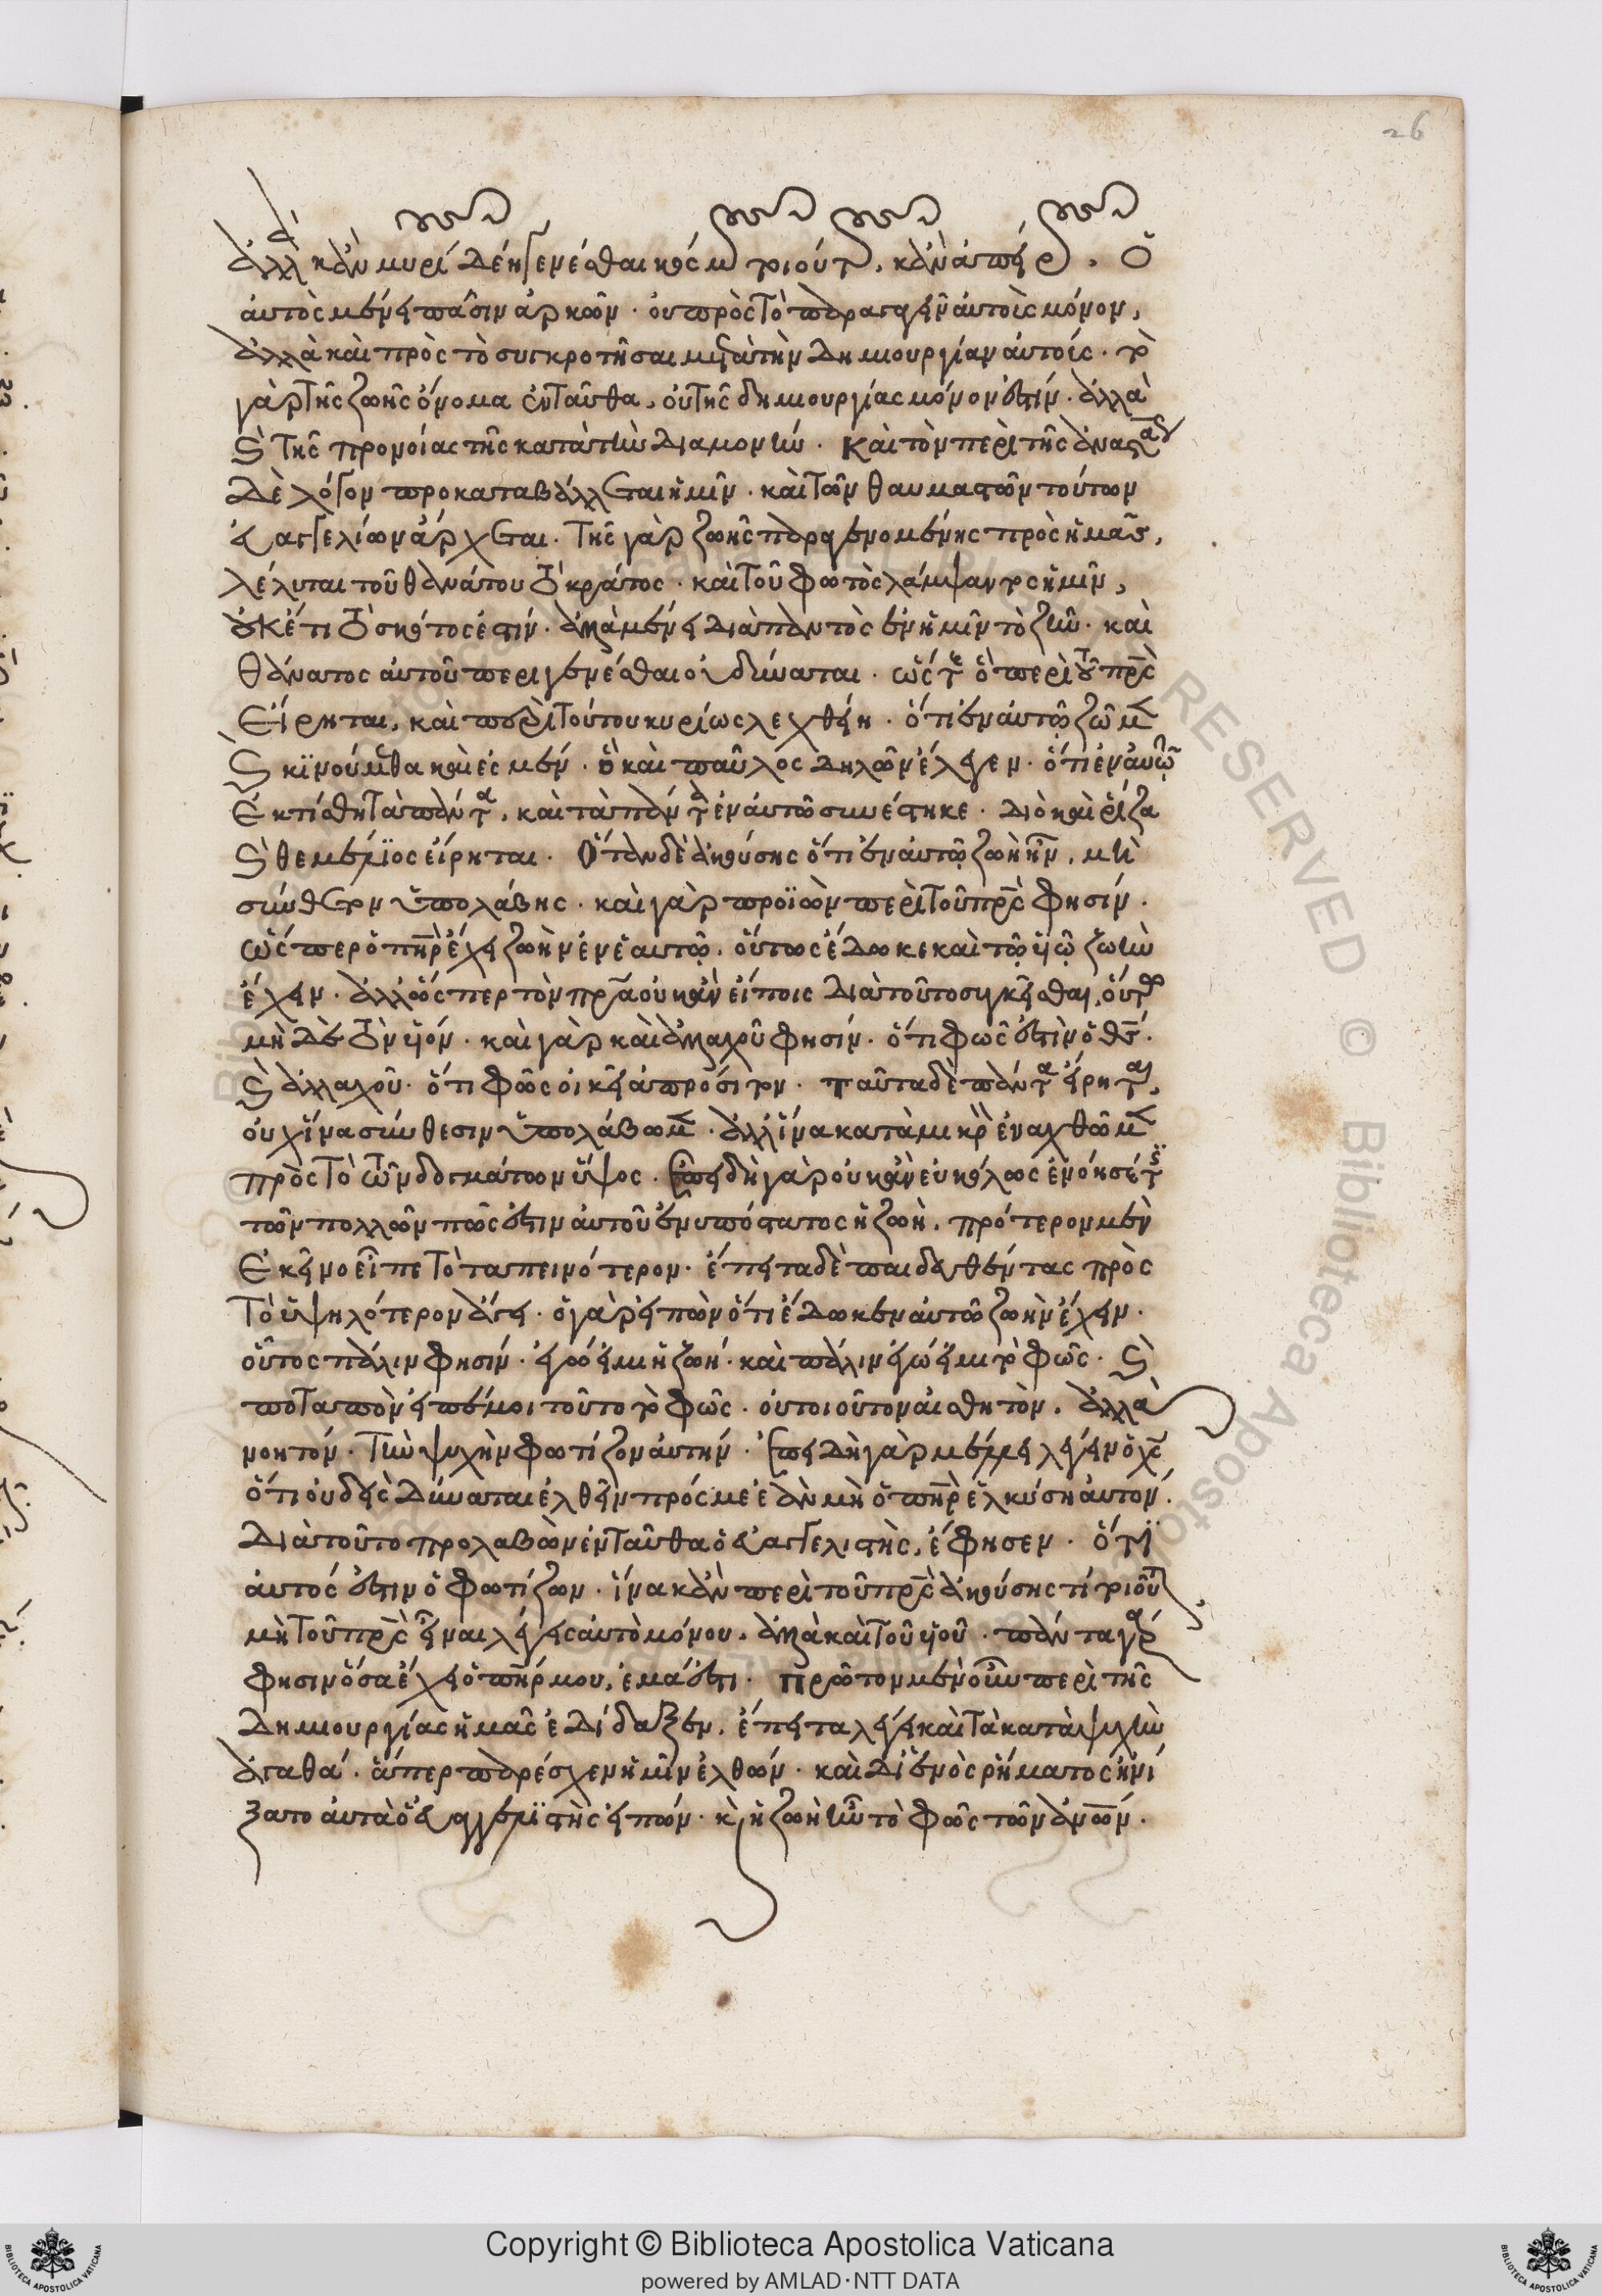 26
ἀλλὰ κἂν μυρί δέη γενέσθαι κόσμ τοιούτ, κἂν ἀπείρ. ὁ
αὐτὸς μένει πᾶσιν ἀρκῶν. οὐ πρὸς τὸ παραγαγεῖν αὐτοὺς μόνον,
ἀλλὰ καὶ πρὸς τὸ συγκροτῆσαι μετὰ τὴν δημιουργίαν αὐτούς. τὸ
γὰρ τῆς ζωῆς ὄνομα ἐνταῦθα, οὐ τῆς δημιουργίας μόνον ἐστίν. ἀλλὰ
καὶ τῆς προνοίας τῆς κατὰ τὴν διαμονήν. καὶ τὸν περὶ τῆς ἀναστάσεως
δὲ λόγον προκαταβάλλεται ἡμῖν. καὶ τῶν θαυμαστῶν τούτων
εὐαγγελίων ἄρχεται. τῆς γὰρ ζωῆς παραγενομένης πρὸς ἡμᾶς,
λέλυται τοῦ θανάτου τὸ κράτος. καὶ τοῦ φωτὸς λάμψαντος ἡμῖν,
οὐκέτι τὸ σκότος ἐστίν. ἀλλὰ μένει διαπαντὸς ἐν ἡμῖν τὸ ζῆν. καὶ
θάνατος αὐτοῦ περιγενέσθαι οὐ δύναται. ὥστε ὃ περὶ τοῦ πρς
εἴρηται, καὶ περὶ τούτου κυρίως λεχθείη. ὅτι ἐν αὐτῷ ζῶμεν
καὶ κινούμεθα καὶ ἐσμέν. ὃ καὶ παῦλος δηλῶν ἔλεγεν. ὅτι ἐν αὐτῷ
ἐκτίσθη τὰ πάντα, καὶ τὰ πάντα ἐν αὐτῷ συνέστηκε. διὸ καὶ ῥίζα
καὶ θεμέλιος εἴρηται. ὅταν δὲ ἀκούσης ὅτι ἐν αὐτῷ ζωὴ ἦν, μὴ
σύνθετον ὑπολάβης. καὶ γὰρ προϊὼν περὶ τοῦ πρς φησίν.
ὥσπερ ὁ πηρ ἔχει ζωὴν ἐν ἑαυτῷ, οὕτως ἔδωκε καὶ τῷ υἱῷ ζωὴν
ἔχειν. ἀλλ' ὥσπερ τὸν πρα οὐκ ἂν εἴποις διὰ τοῦτο συγκεῖσθαι, οὕτω
μὴ δὲ τὸν υἱόν. καὶ γὰρ καὶ ἀλλαχοῦ φησίν. ὅτι φῶς ἐστὶν ὁ θς.
καὶ ἀλλαχοῦ. ὅτι φῶς οἰκεῖ ἀπρόσιτον. ταῦτα δὲ πάντα εἴρηται,
οὐχ ἵνα σύνθεσιν ὑπολάβωμεν. ἀλλ' ἵνα κατὰ μικρὸν ἐναχθῶμεν
πρὸς τὸ τῶν δογμάτων ὕψος. ἐπειδὴ γὰρ οὐκ ἂν εὐκόλως ἐνόησέ τις
τῶν πολλῶν πῶς ἐστιν αὐτοῦ ἐνυπόστατος ἡ ζωή, πρότερον μὲν
ἐκεῖνο εἶπε τὸ ταπεινότερον. ἔπειτα δὲ παιδευθέντας πρὸς
τὸ ὑψηλότερον ἄγει. ὁ γὰρ εἰπὼν ὅτι ἔδωκεν αὐτῷ ζωὴν ἔχειν.
οὗτος πάλιν φησίν. ἐγώ εἰμι ἡ ζωή. καὶ πάλιν ἐγώ εἰμι τὸ φῶς. καὶ
ποταπὸν εἰπέ μοι τοῦτο τὸ φῶς. οὐ τοιοῦτον αἰσθητὸν, ἀλλὰ
νοητόν. τὴν ψυχὴν φωτίζον αὐτήν. ἐπειδὴ γὰρ μέλλει λέγειν ὁ χς
ὅτι οὐδεὶς δύναται ἐλθεῖν πρός με ἐὰν μὴ ὁ πηρ ἑλκύση αὐτόν.
διὰ τοῦτο προλαβὼν ἐνταῦθα ὁ εὐαγγελιστής, ἔφησεν. ὅτι
αὐτός ἐστιν ὁ φωτίζων. ἵνα κἂν περὶ τοῦ πρς ἀκούσης τι τοιοῦτ
μὴ τοῦ πρς εἶναι λέγεις αὐτὸ μόνου, ἀλλὰ καὶ τοῦ υἱοῦ. πάντα γάρ
φησιν ὅσα ἔχει ὁ πηρ μου, ἐμά ἐστι. πρῶτον μὲν οὖν περὶ τῆς
δημιουργίας ἡμᾶς ἐδίδαξεν, ἔπειτα λέγει καὶ τὰ κατὰ ψυχὴν
ἀγαθά. ἅπερ παρέσχεν ἡμῖν ἐλθών. καὶ δι' ἑνὸς ῥήματος ᾐνί
ξατο αὐτὰ ὁ εὐαγγελιστὴς εἰπών. καὶ ἡ ζωὴ ἦν τὸ φῶς τῶν ἀνων.
Copyright © Biblioteca Apostolica Vaticana
powered by AMLAD·NTT DATA